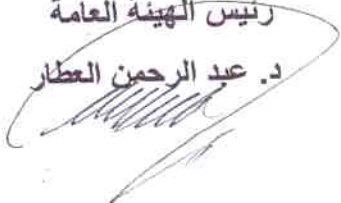 رئيس الهيئة العامة
د. عبد الرحمن العطار